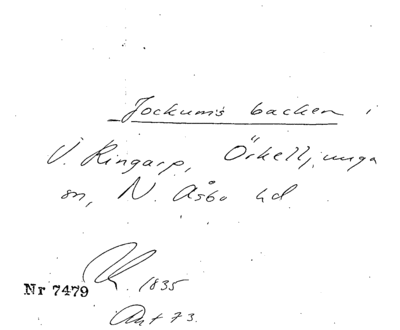 Jockums backen i
V. Ringarp, Örkelljunga
sn, N. Åsbo hd
1835
Nr 7479
Ant 73.